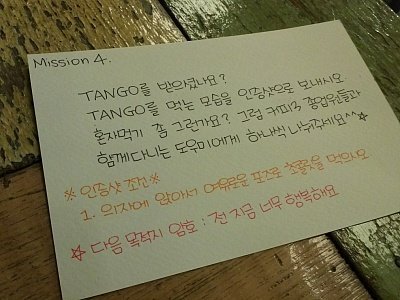 Mission 4.
TANGO를 받아셨나요?
TANGO를 먹는 모습을 인증샷으로 보내시오.
혼자먹기 좀 그런가요? 그럼 커피 종업원들과
함께다니는 도우미에게 하나씩 나눠주세요^^☆
※ 인증샷 조건※
1. 의자에 앉아서 여유로운 포즈로 초콜릿을 먹으시오
☆ 다음 목적지 암호 : 전 지금 너무 행복해요